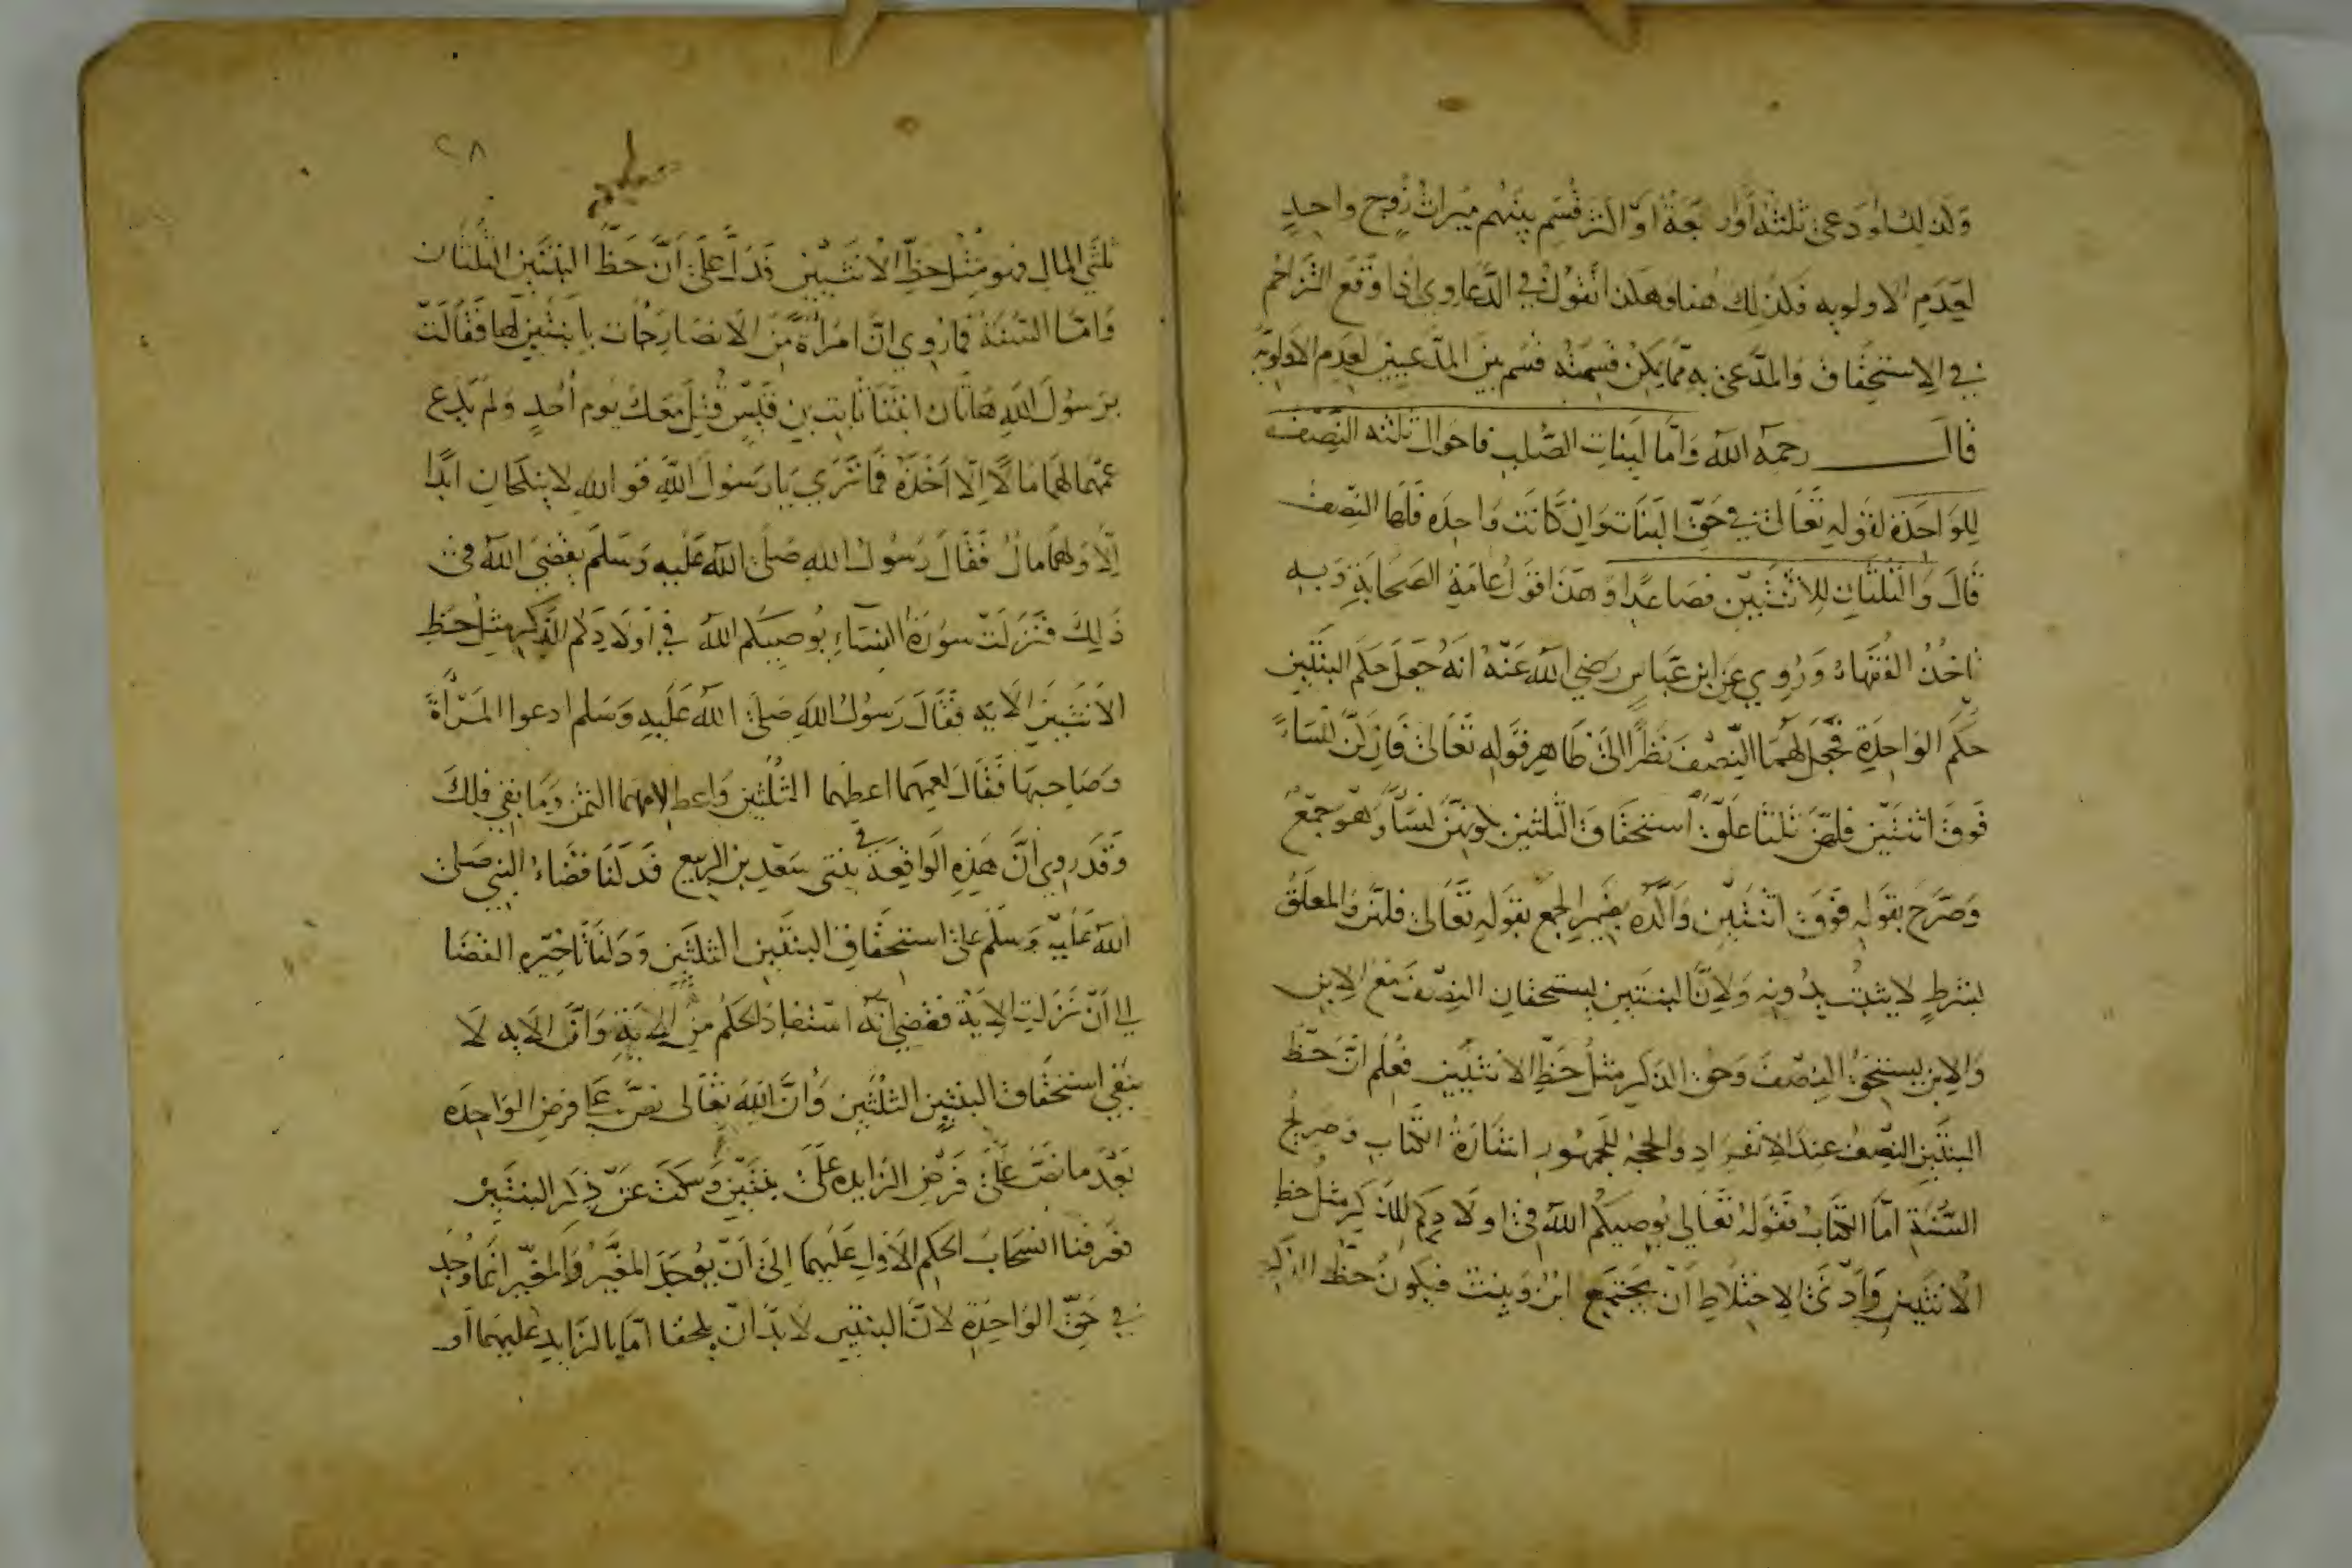 وكذلك لو ادعى ثلثة أو اربعة او اكثر قسم بينهم ميراث زوج واحد
لعدم الاولويه فكذلك هنا وهكذا نقول في الدعاوي اذا وقع التزاحم
في الاستحقاق والمدعى به مما يمكن قسمته قسم بين المدعيين لعدم الاولويه
قال رحمه الله وأما لبنات الصلب فاحوال ثلثه النصف
للواحدة لقوله تعالى في حق البنات وان كانت واحده فلها النصف
قال والثلثان للاثنتين فصاعدا وهذا قول عامة الصحابة وبه
ناخذ الفقهاء وروي عن ابن عباس رضي الله عنه انه جعل حكم البنتين
حكم الواحدة فجعل لهما النصف نظرا الى ظاهر قوله تعالى فان كن نساء
فوق اثنتين فلهن ثلثا علق استحقاق الثلثين بكونهن نساء وهو جمع
وصرح بقوله فوق اثنتين واكده بضمير الجمع بقوله تعالى فلهن والمعلق
بشرط لا يثبت بدونه ولان البنتين يستحقان النصف مع الابن
والابن يستحق النصف وحق الذكر مثل حظ الانثيين فعلم ان حظ
البنتين النصف عند الانفراد والحجه للجمهور اشارة الكتاب وصريح
السنة اما الكتاب فقوله تعالى يوصيكم الله في اولادكم للذكر مثل حظ
الانثيين وادنى الاختلاط ان يجتمع ابن وبنت فيكون حظ الذكر
٢٨
ثلثي المال وهو مثل حظ الانثيين فدل على ان حظ البنتين الثلثان
واما السنة فما روي ان امراة من الانصار جات بابنتين لها فقالت
يرسول الله هاتان ابنتا ثابت بن قيس قتل معك يوم أحد ولم يدع
عمهما لهما مالا الا اخذه فما ترى يا رسول الله فوالله لا ينكحان ابدا
الا ولهما مال فقال رسول الله صلى الله عليه وسلم يقضي الله في
ذلك فنزلت سورة النساء يوصيكم الله في اولادكم للذكر مثل حظ
الانثيين الايه فقال رسول الله صلى الله عليه وسلم ادعوا المرأة
وصاحبها فقال لعمهما اعطهما الثلثين واعط لامهما الثمن وما بقي فلك
وقد روي أن هذه الواقعة في بنتي سعد بن الربيع فدلنا قضاء النبي صلى
الله عليه وسلم على استحقاق البنتين الثلثين ودلنا تاخيره القضا
الى أن نزلت الاية فقضي انه استفاد الحكم من الاية وان الايه لا
ينفي استحقاق البنتين الثلثين وان الله تعالى نص على فرض الواحده
بعد ما نص على فرض الزايده على بنتين وسكت عن ذكر البنتين
فعرفنا انسحاب الحكم الاول عليهما الى ان يوجد المغير والمغير انما وجد
في حق الواحدة لان البنتين لا بد ان يلحقا اما بالزايد عليهما او